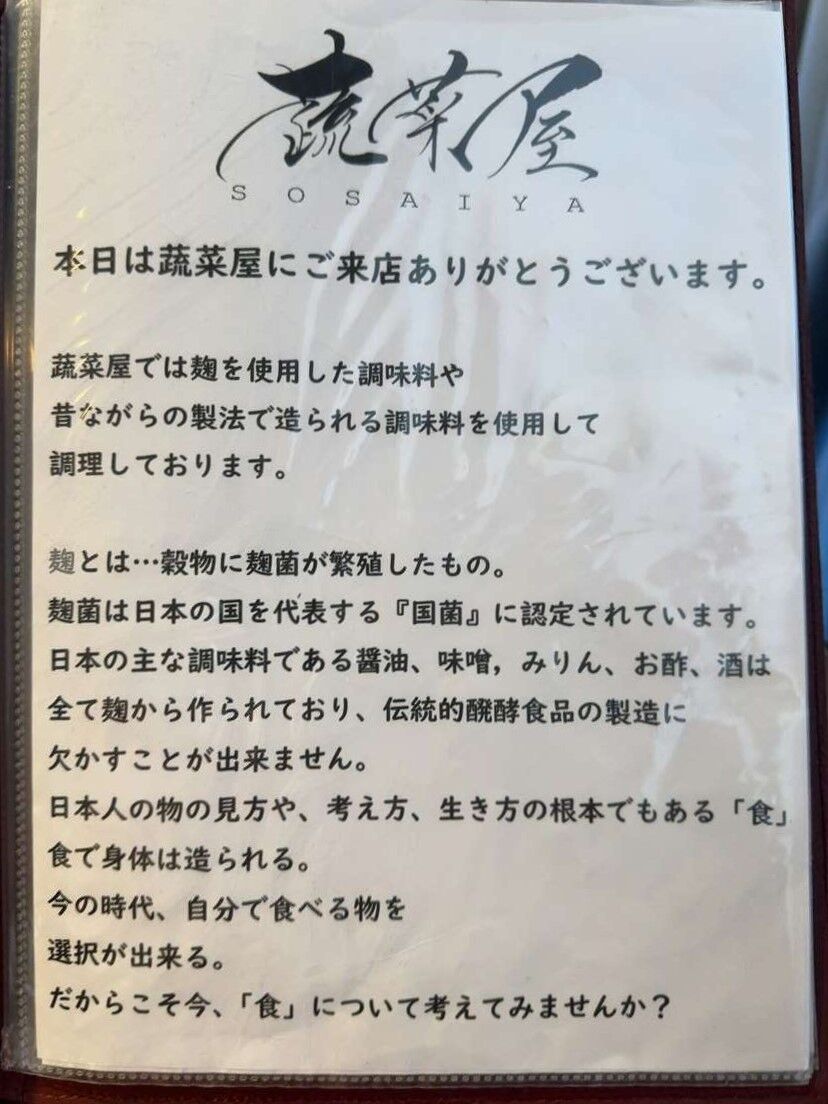 蔬菜屋
SOSAIYA
本日は蔬菜屋にご来店ありがとうございます。
蔬菜屋では麹を使用した調味料や
昔ながらの製法で造られる調味料を使用して
調理しております。
麹とは…穀物に麹菌が繁殖したもの。
麹菌は日本の国を代表する『国菌』に認定されています。
日本の主な調味料である醤油、味噌，みりん、お酢、酒は
全て麹から作られており、伝統的醗酵食品の製造に
欠かすことが出来ません。
日本人の物の見方や、考え方、生き方の根本でもある「食」
食で身体は造られる。
今の時代、自分で食べる物を
選択が出来る。
だからこそ今、「食」について考えてみませんか？